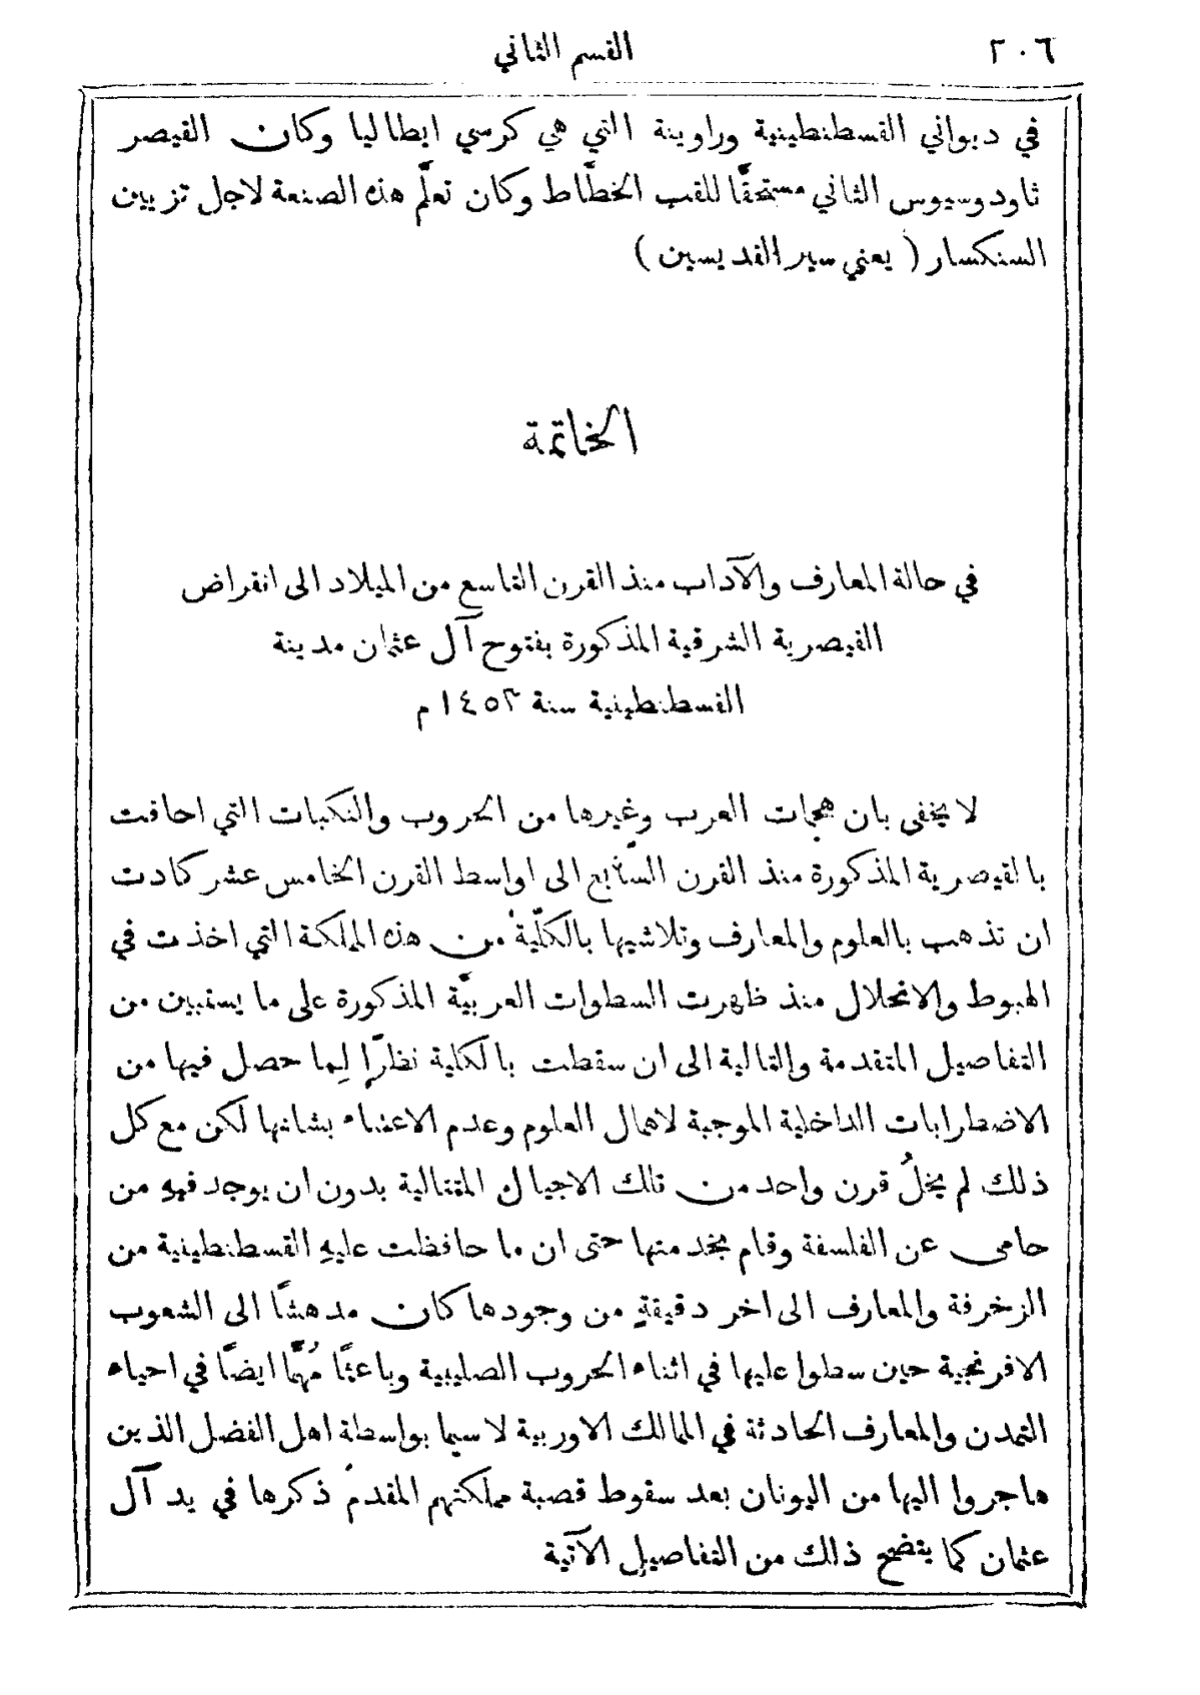 ٢٠٦
القسم الثاني
في ديواني القسطنطينية وراوينة التي هي كرسي ايطاليا وكان القيصر
ثاودوسيوس الثاني مستحقًّا للقب الخطَّاط وكان تعلَّم هذه الصنعة لاجل تزيين
السنكسار ( يعني سير القديسين )
الخاتمة
في حالة المعارف والآداب منذ القرن التاسع من الميلاد الى انقراض
القيصرية الشرقية المذكورة بفتوح آل عثمان مدينة
القسطنطينية سنة ١٤٥٣ م
لا يخفى بان هجمات العرب وغيرها من الحروب والنكبات التي احاقت
بالقيصرية المذكورة منذ القرن السَّابع الى اواسط القرن الخامس عشر كادت
ان تذهب بالعلوم والمعارف وتلاشيها بالكلّية من هذه المملكة التي اخذت في
الهبوط والانحلال منذ ظهرت السطوات العربيَّة المذكورة على ما يستبين من
التفاصيل المتقدمة والتالية الى ان سقطت بالكلية نظرًا لِما حصل فيها من
الاضطرابات الداخلية الموجبة لاهمال العلوم وعدم الاعتناء بشانها لكن مع كل
ذلك لم يخلُ قرن واحد من تلك الاجيال المتتالية بدون ان يوجد فيهِ من
حامى عن الفلسفة وقام بخدمتها حتى ان ما حافظت عليهِ القسطنطينية من
الزخرفة والمعارف الى اخر دقيقةٍ من وجودها كان مدهشًا الى الشعوب
الافرنجية حين سطوا عليها في اثناء الحروب الصليبية وباعثًا مُهمًّا ايضًا في احياء
التمدن والمعارف الحادثة في الممالك الاوربية لا سيما بواسطة اهل الفضل الذين
هاجروا اليها من اليونان بعد سقوط قصبة مملكتهم المقدم ذكرها في يد آل
عثمان كما يتضح ذلك من التفاصيل الآتية